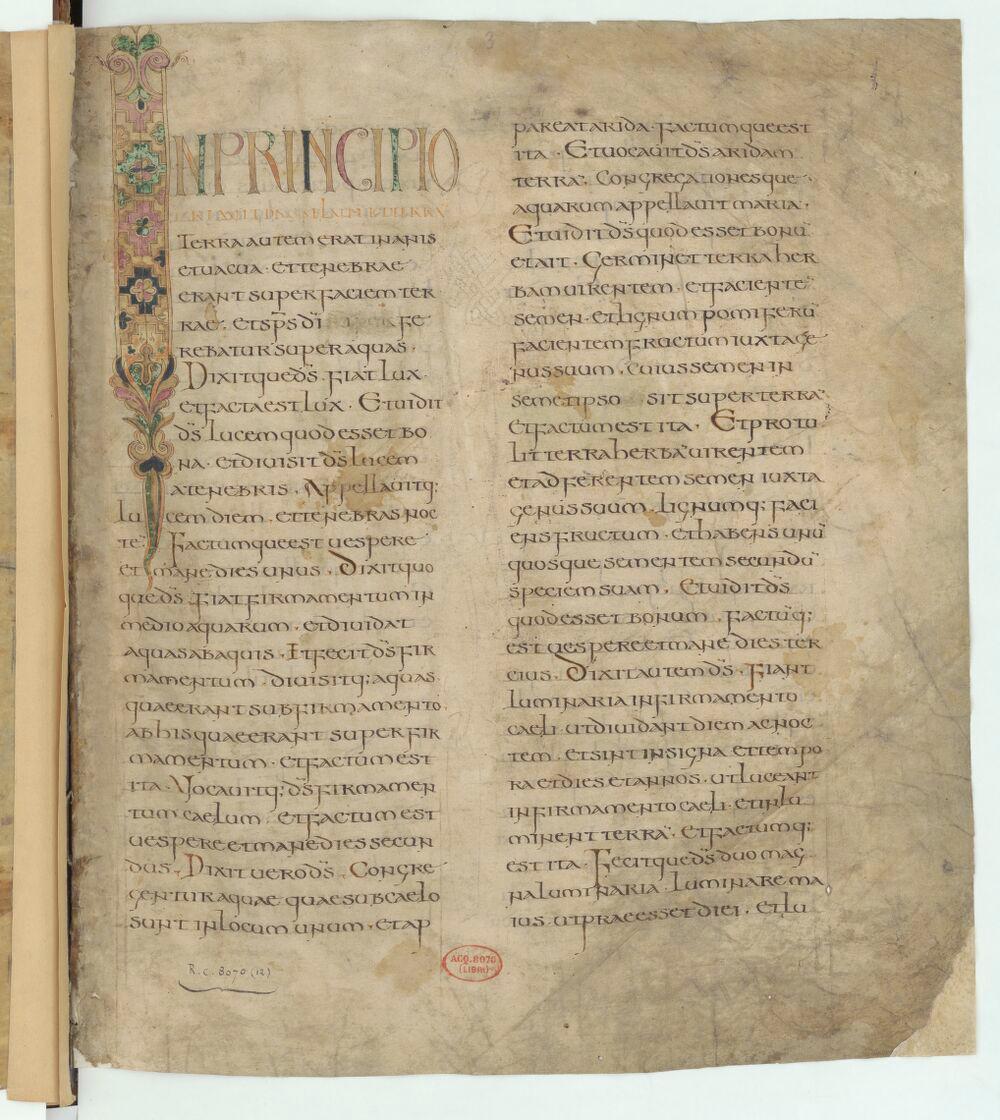 3
IN PRINCIPIO
CREAVIT DS CAELUM ET TERRĀ
Terra autem erat inanis
et vacua · et tenebrae
erant super faciem ter
rae · et sps di fe
rebatur super aquas ·
Dixitque ds · fiat lux ·
et facta est lux · Et vidit
ds lucem quod esset bo
na · et divisit ds lucem
a tenebris · Appellavitq;
lucem diem · et tenebras noc
te · Factumque est vespere
et mane dies unus · Dixit quo
que ds · fiat firmamentum in
medio aquarum · et dividat
aquas ab aquis · Et fecit ds fir
mamentum · divisitq; aquas
quae erant sub firmamento
ab his quae erant super fir
mamentum · et factum est
ita · Vocavitq; ds firmamen
tum caelum · et factum est
vespere et mane dies secun
dus · Dixit vero ds · Congre
gentur aquae quae sub caelo
sunt in locum unum · et ap
R.c. 8070 (12)
pareat arida · factumque est
ita · Et vocavit ds aridam
terrā · Congregationesque
aquarum appellavit maria ·
Et vidit ds quod esset bonū
et ait · Germinet terra her
bam virentem · et faciente
semen · et lignum pomiferū
faciens fructum iuxta ge
nus suum · cuius semen in
semetipso sit super terrā
et factum est ita · Et protu
lit terra herbā virentem
et adferentem semen iuxta
genus suum · lignumq; faci
ens fructum · et habens unū
quosque sementem secundū
speciem suam · Et vidit ds
quod esset bonum · factūq;
est vespere et mane dies ter
cius · Dixit autem ds · Fiant
luminaria in firmamento
caeli · ut dividant diem ac noc
tem · et sint in signa et tempo
ra et dies et annos · ut luceant
in firmamento caeli · et inlu
minent terrā · et factumq;
est ita · Fecitque ds duo mag
na luminaria · luminare ma
ius · ut praeesset diei · et lu
ACQ. 8070
(LIBRI)